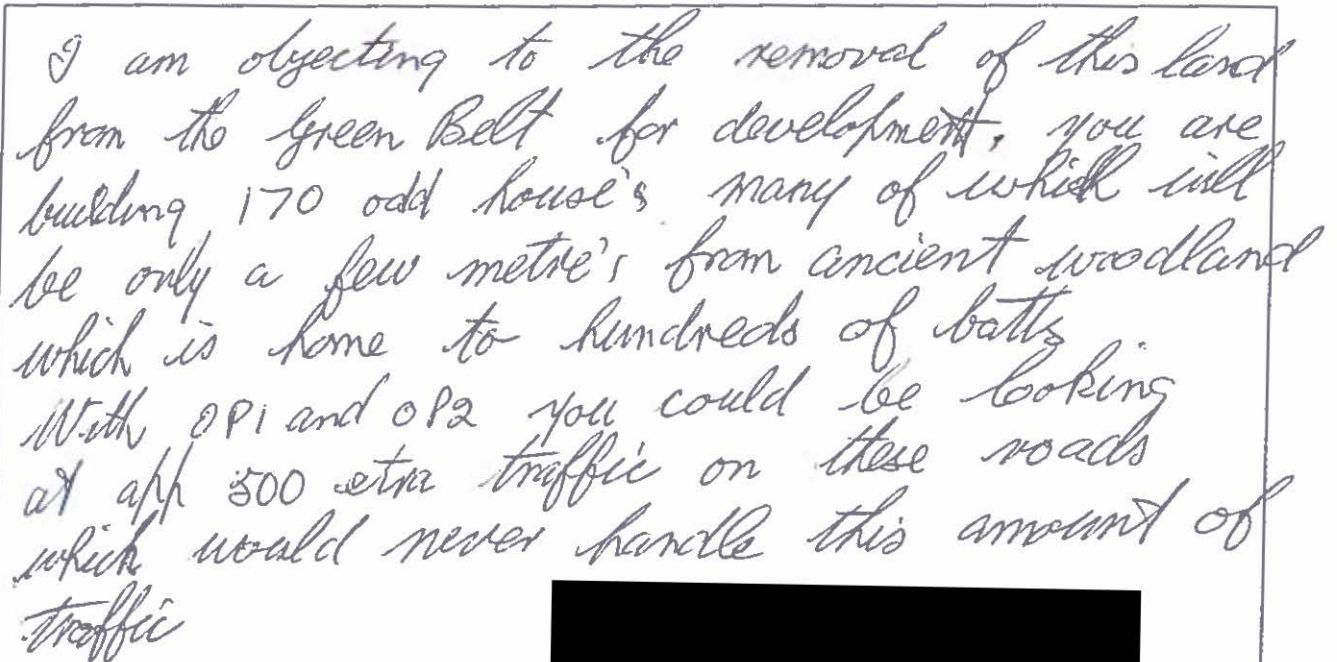 I am objecting to the removal of this land
from the Green Belt for development, you are
building 170 odd house's many of which will
be only a few metre's from ancient woodland
which is home to hundreds of batts
With OP1 and OP2 you could be looking
at app 500 etra traffic on these roads
which would never handle this amount of
traffic